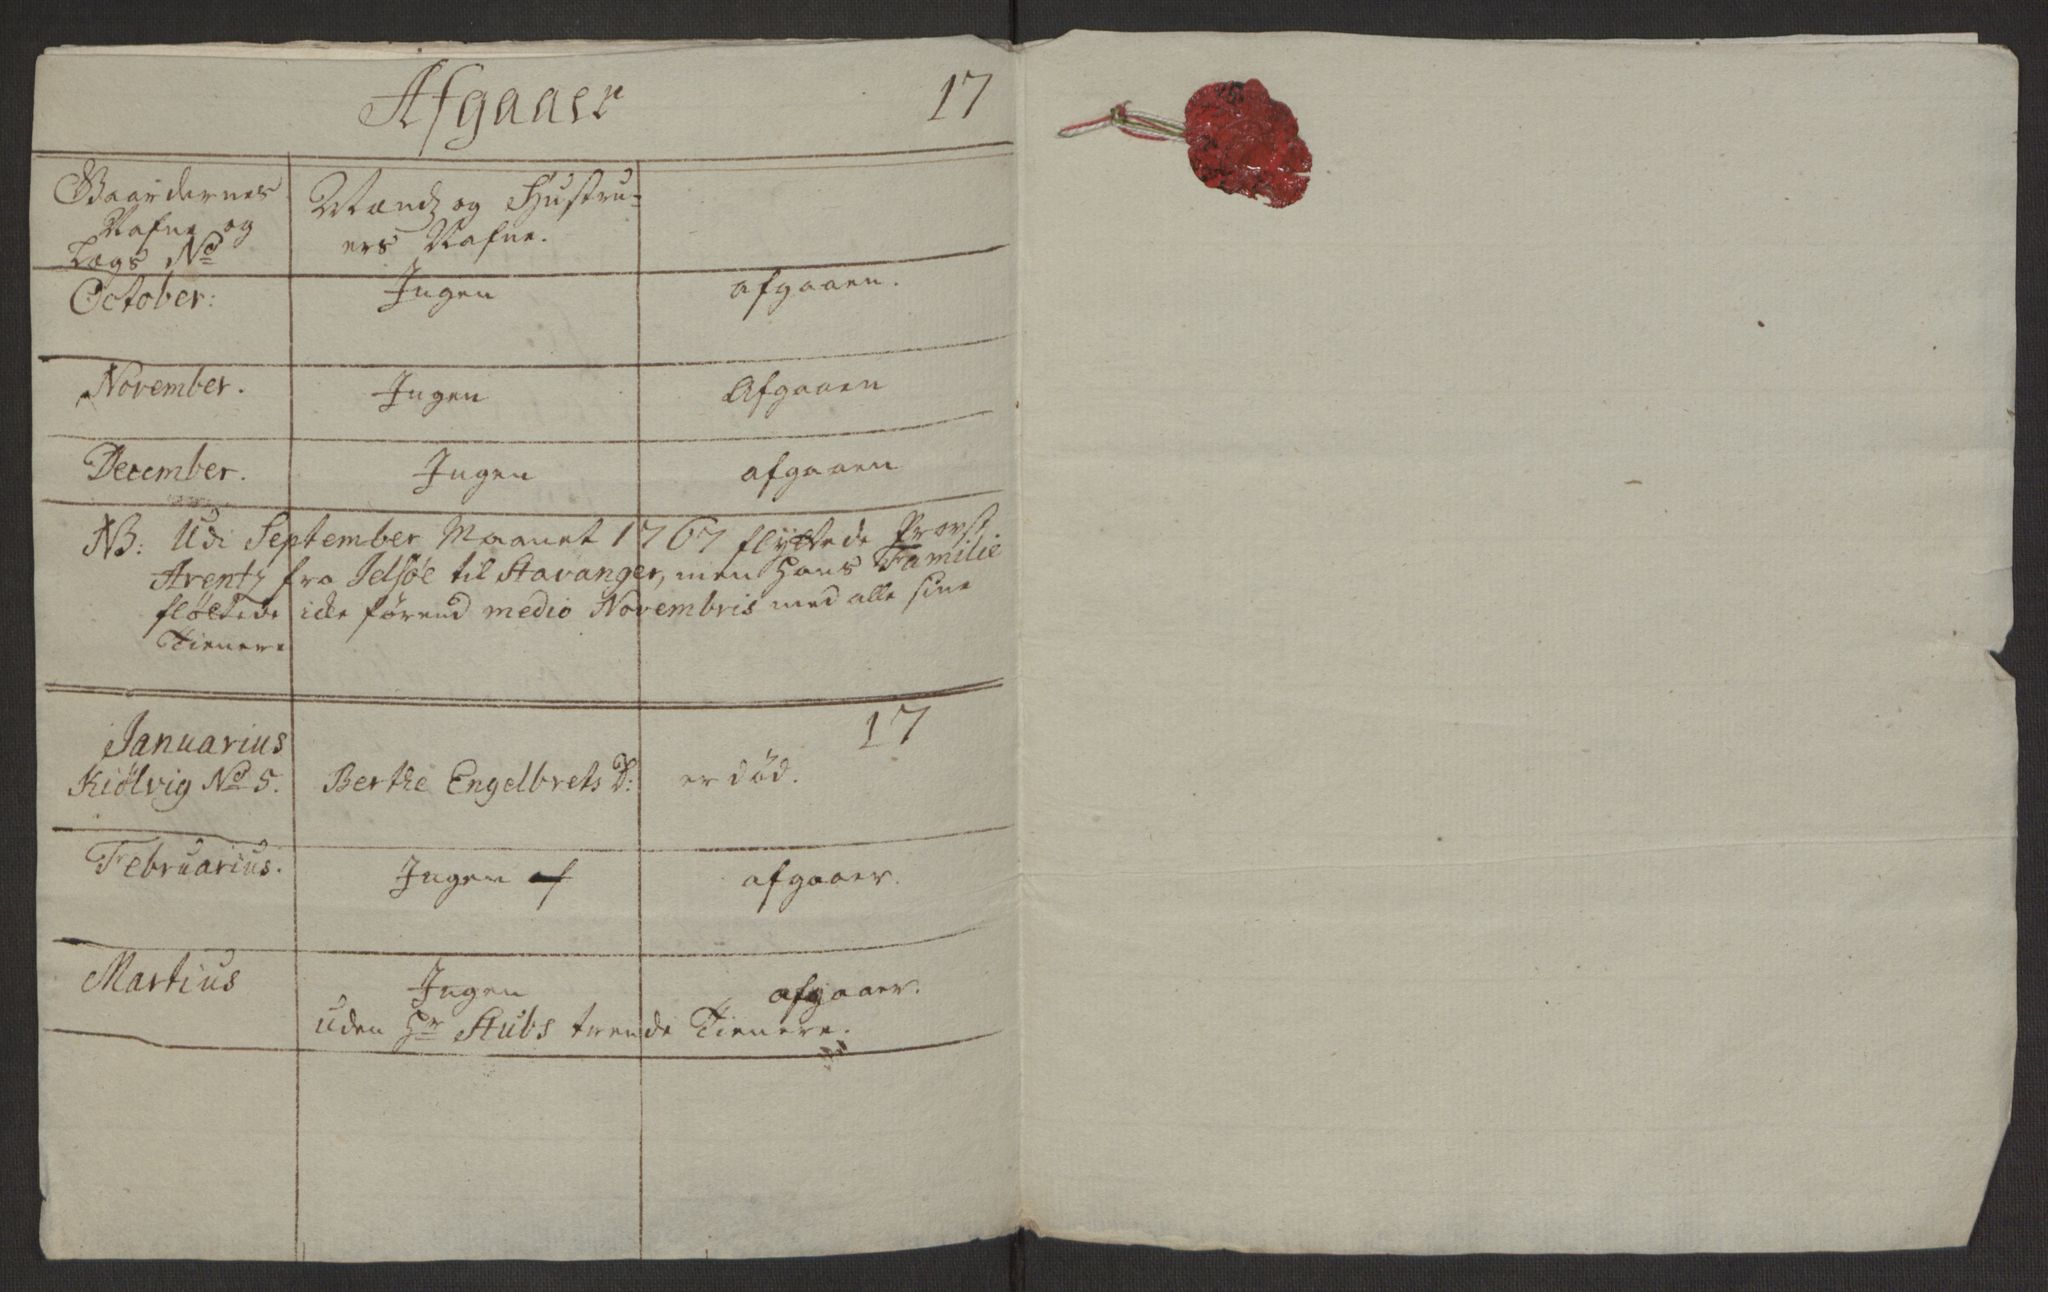 Afgaaer 17
Gaardernes
Nafne og
Lægs No
Mænd og Hustru-
ers Nafne.
October: Ingen afgaaen.
November. Ingen Afgaaen
December. Ingen afgaaen
NB: Udi September Maanet 1767 flyttede Provst
Arentz fra Jelsøe til Stavanger, men Hans Familie
fløttede icke førend medio Novembris med alle sine
Tienere
Januarius 17
Kiölvig No 5. Berthe Engelbrets D: er död.
Februarius. Ingen af afgaaer.
Martius Ingen afgaaer.
uden Hr Stubs trende Tienere.